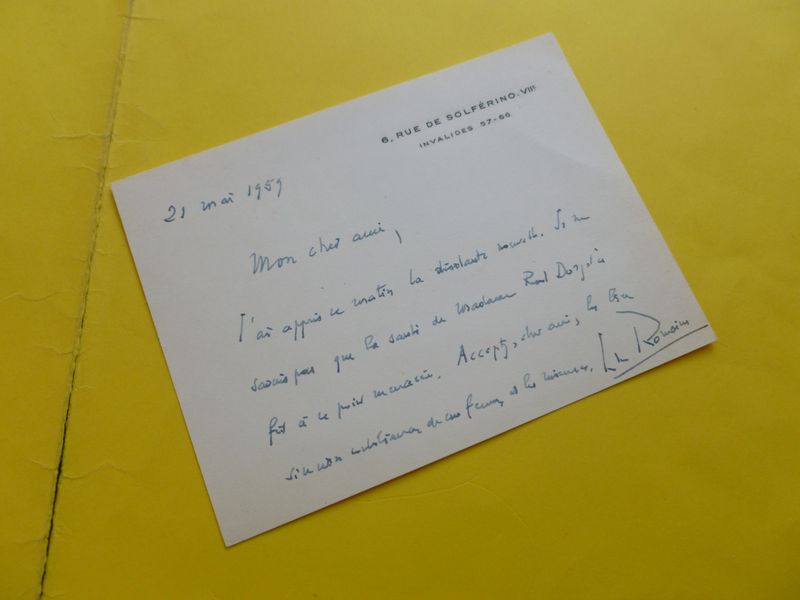 6, RUE DE SOLFÉRINO. VIIe
INVALIDES 57-66
21 mai 1959
Mon cher ami,
J'ai appris ce matin la désolante nouvelle. Je ne
savais pas que la santé de Madame Roland Dorgelès
fût à ce point menacée. Acceptez, cher ami, les
condoléances de ma femme et les miennes. Jules Romains